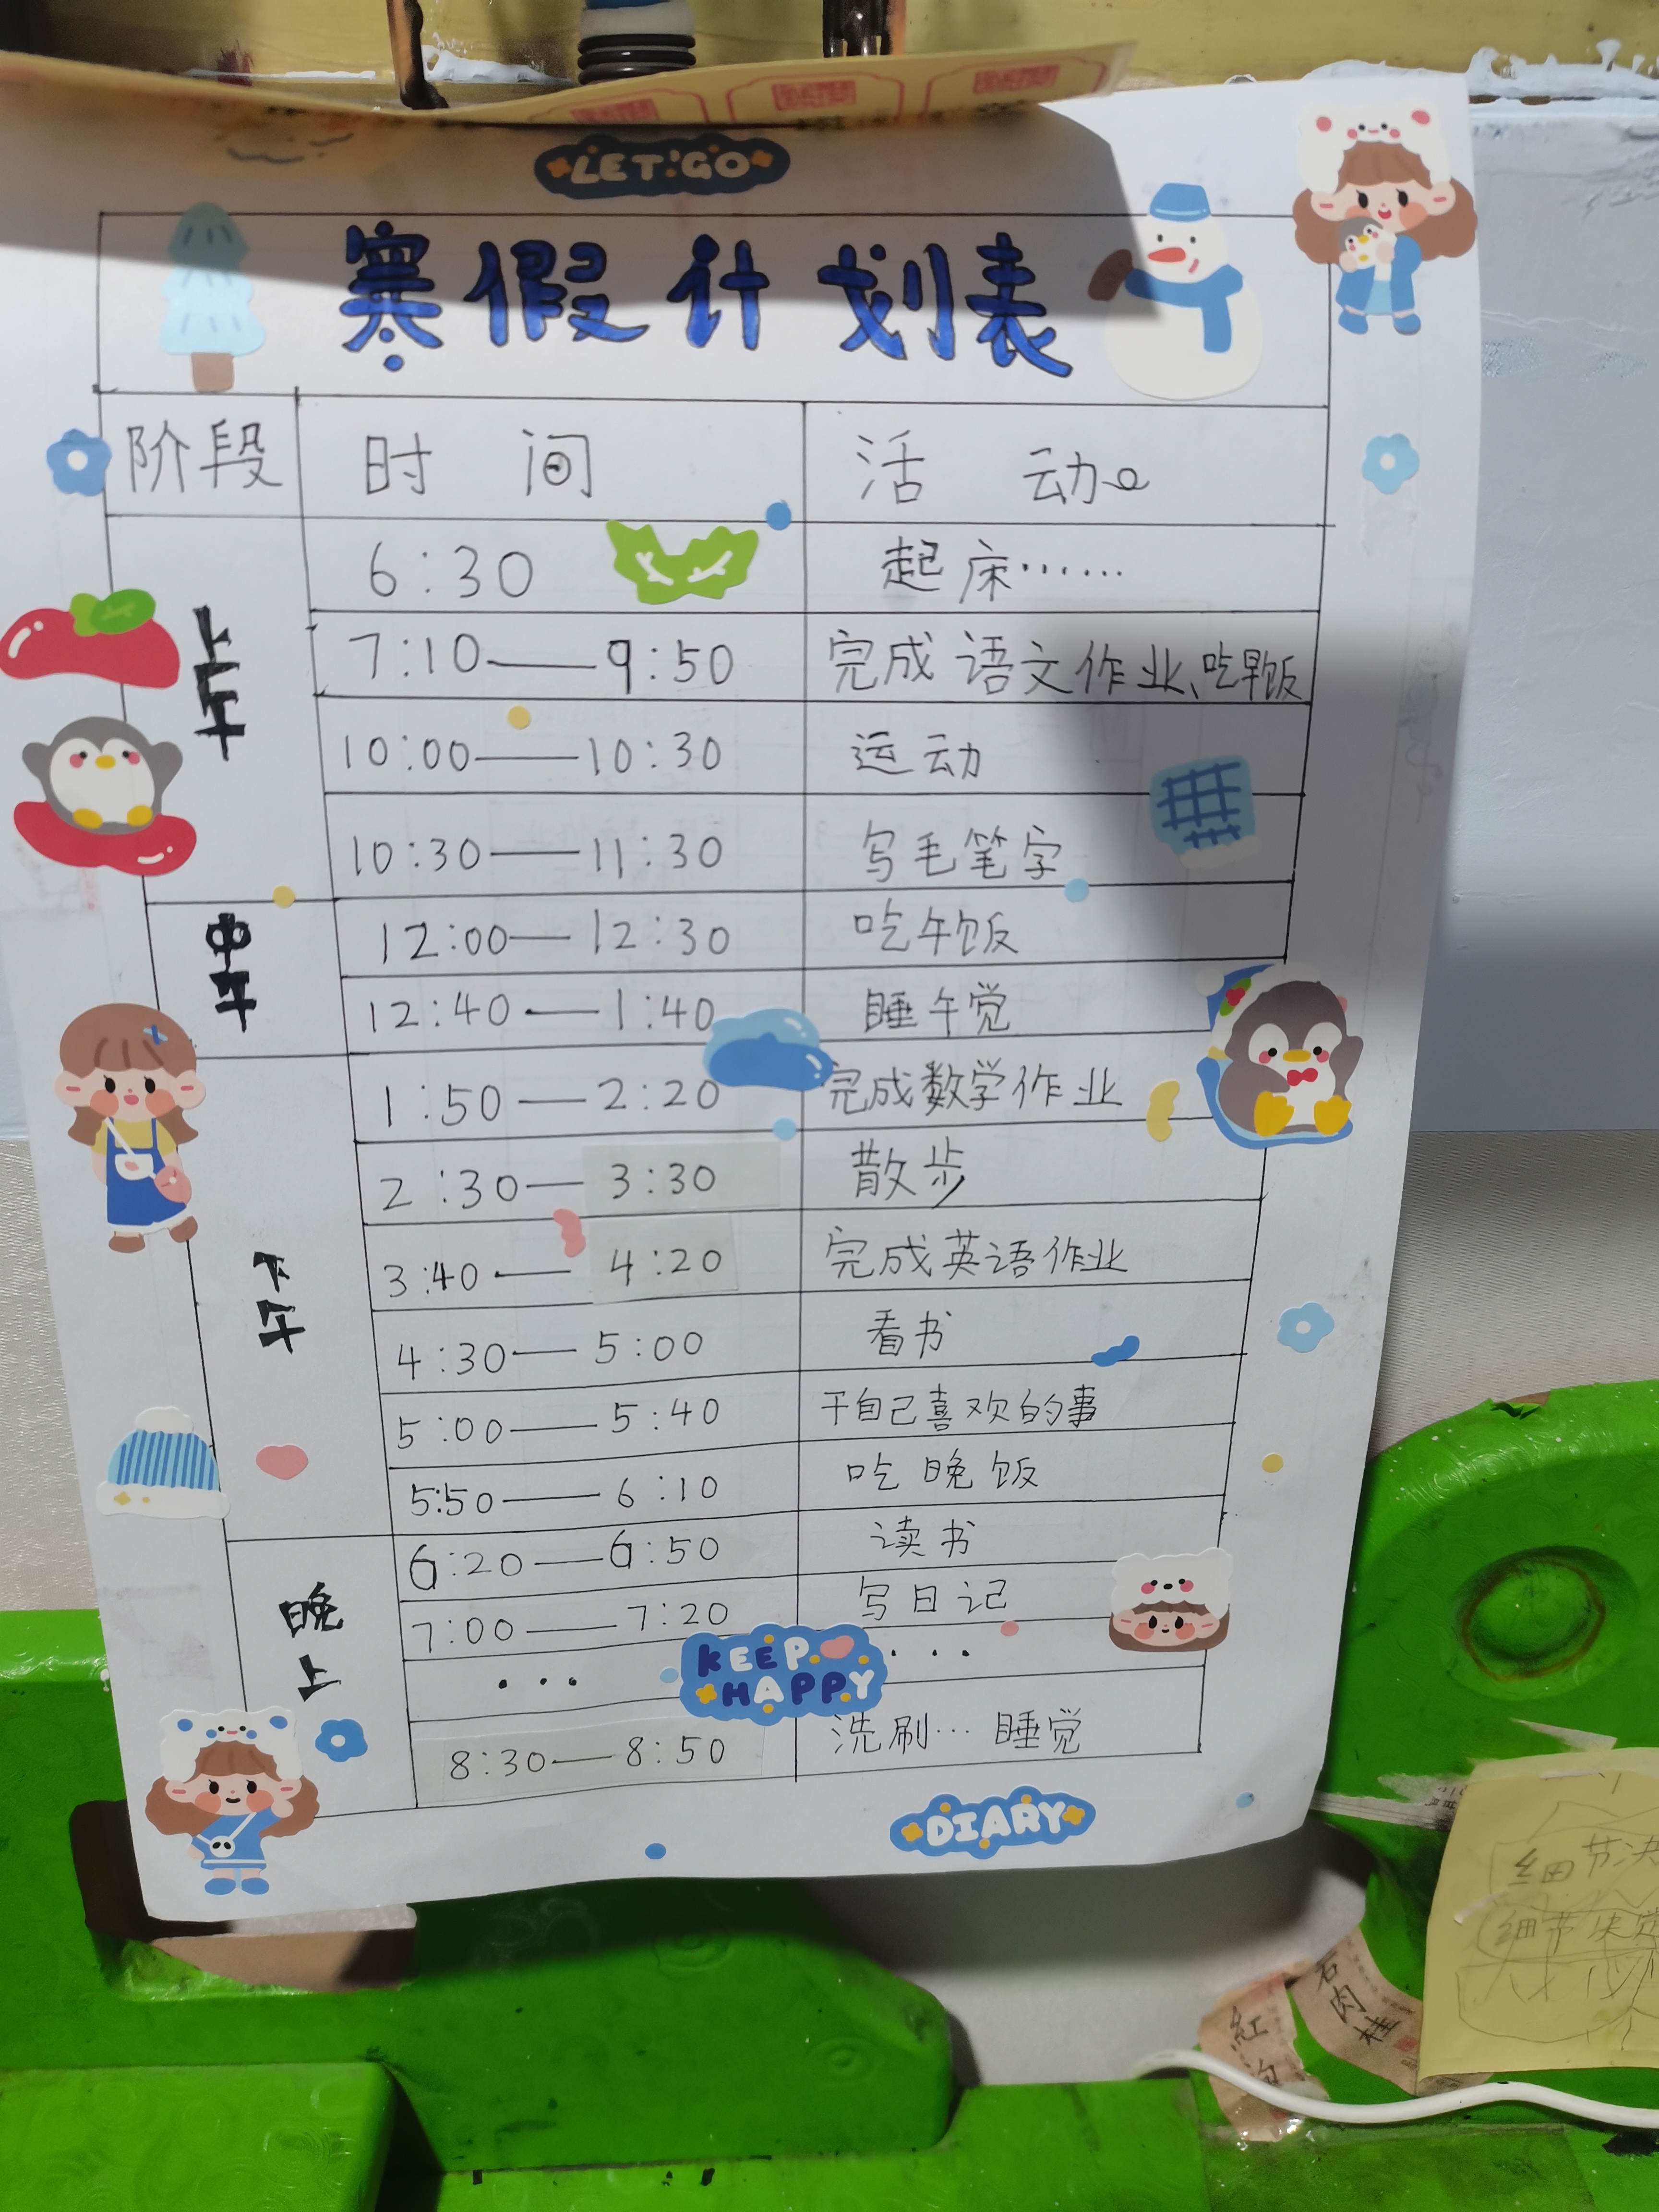 LET'GO
寒假计划表
阶段 时间 活动
上午
6:30 起床……
7:10——9:50 完成语文作业、吃早饭
10:00——10:30 运动
10:30——11:30 写毛笔字
中午
12:00—12:30 吃午饭
12:40——1:40 睡午觉
下午
1:50——2:20 完成数学作业
2:30—3:30 散步
3:40——4:20 完成英语作业
4:30——5:00 看书
5:00——5:40 干自己喜欢的事
5:50——6:10 吃晚饭
晚上
6:20——6:50 读书
7:00——7:20 写日记
... ...
KEEP
HAPPY
8:30——8:50 洗刷… 睡觉
DIARY
细节决
细节决定
肉桂
紅